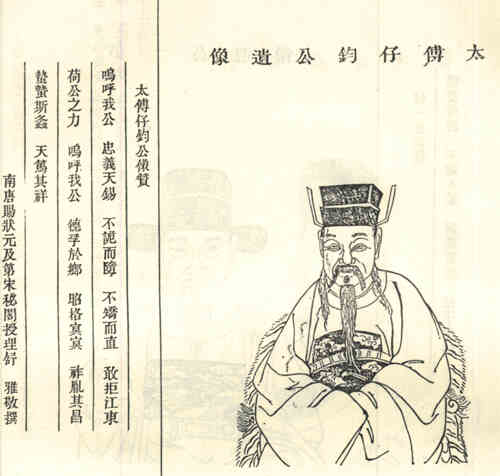 太傅仔鈞公遺像
太傅仔鈞公像贊
嗚呼我公 忠義天錫 不詭而隨 不矯而直 敢拒江東
荷公之力 嗚呼我公 德孚於鄉 昭格冥冥 祚胤其昌
蟄蟄斯螽 天篤其祥
南唐賜狀元及第宋秘閣授理舒 雅敬撰